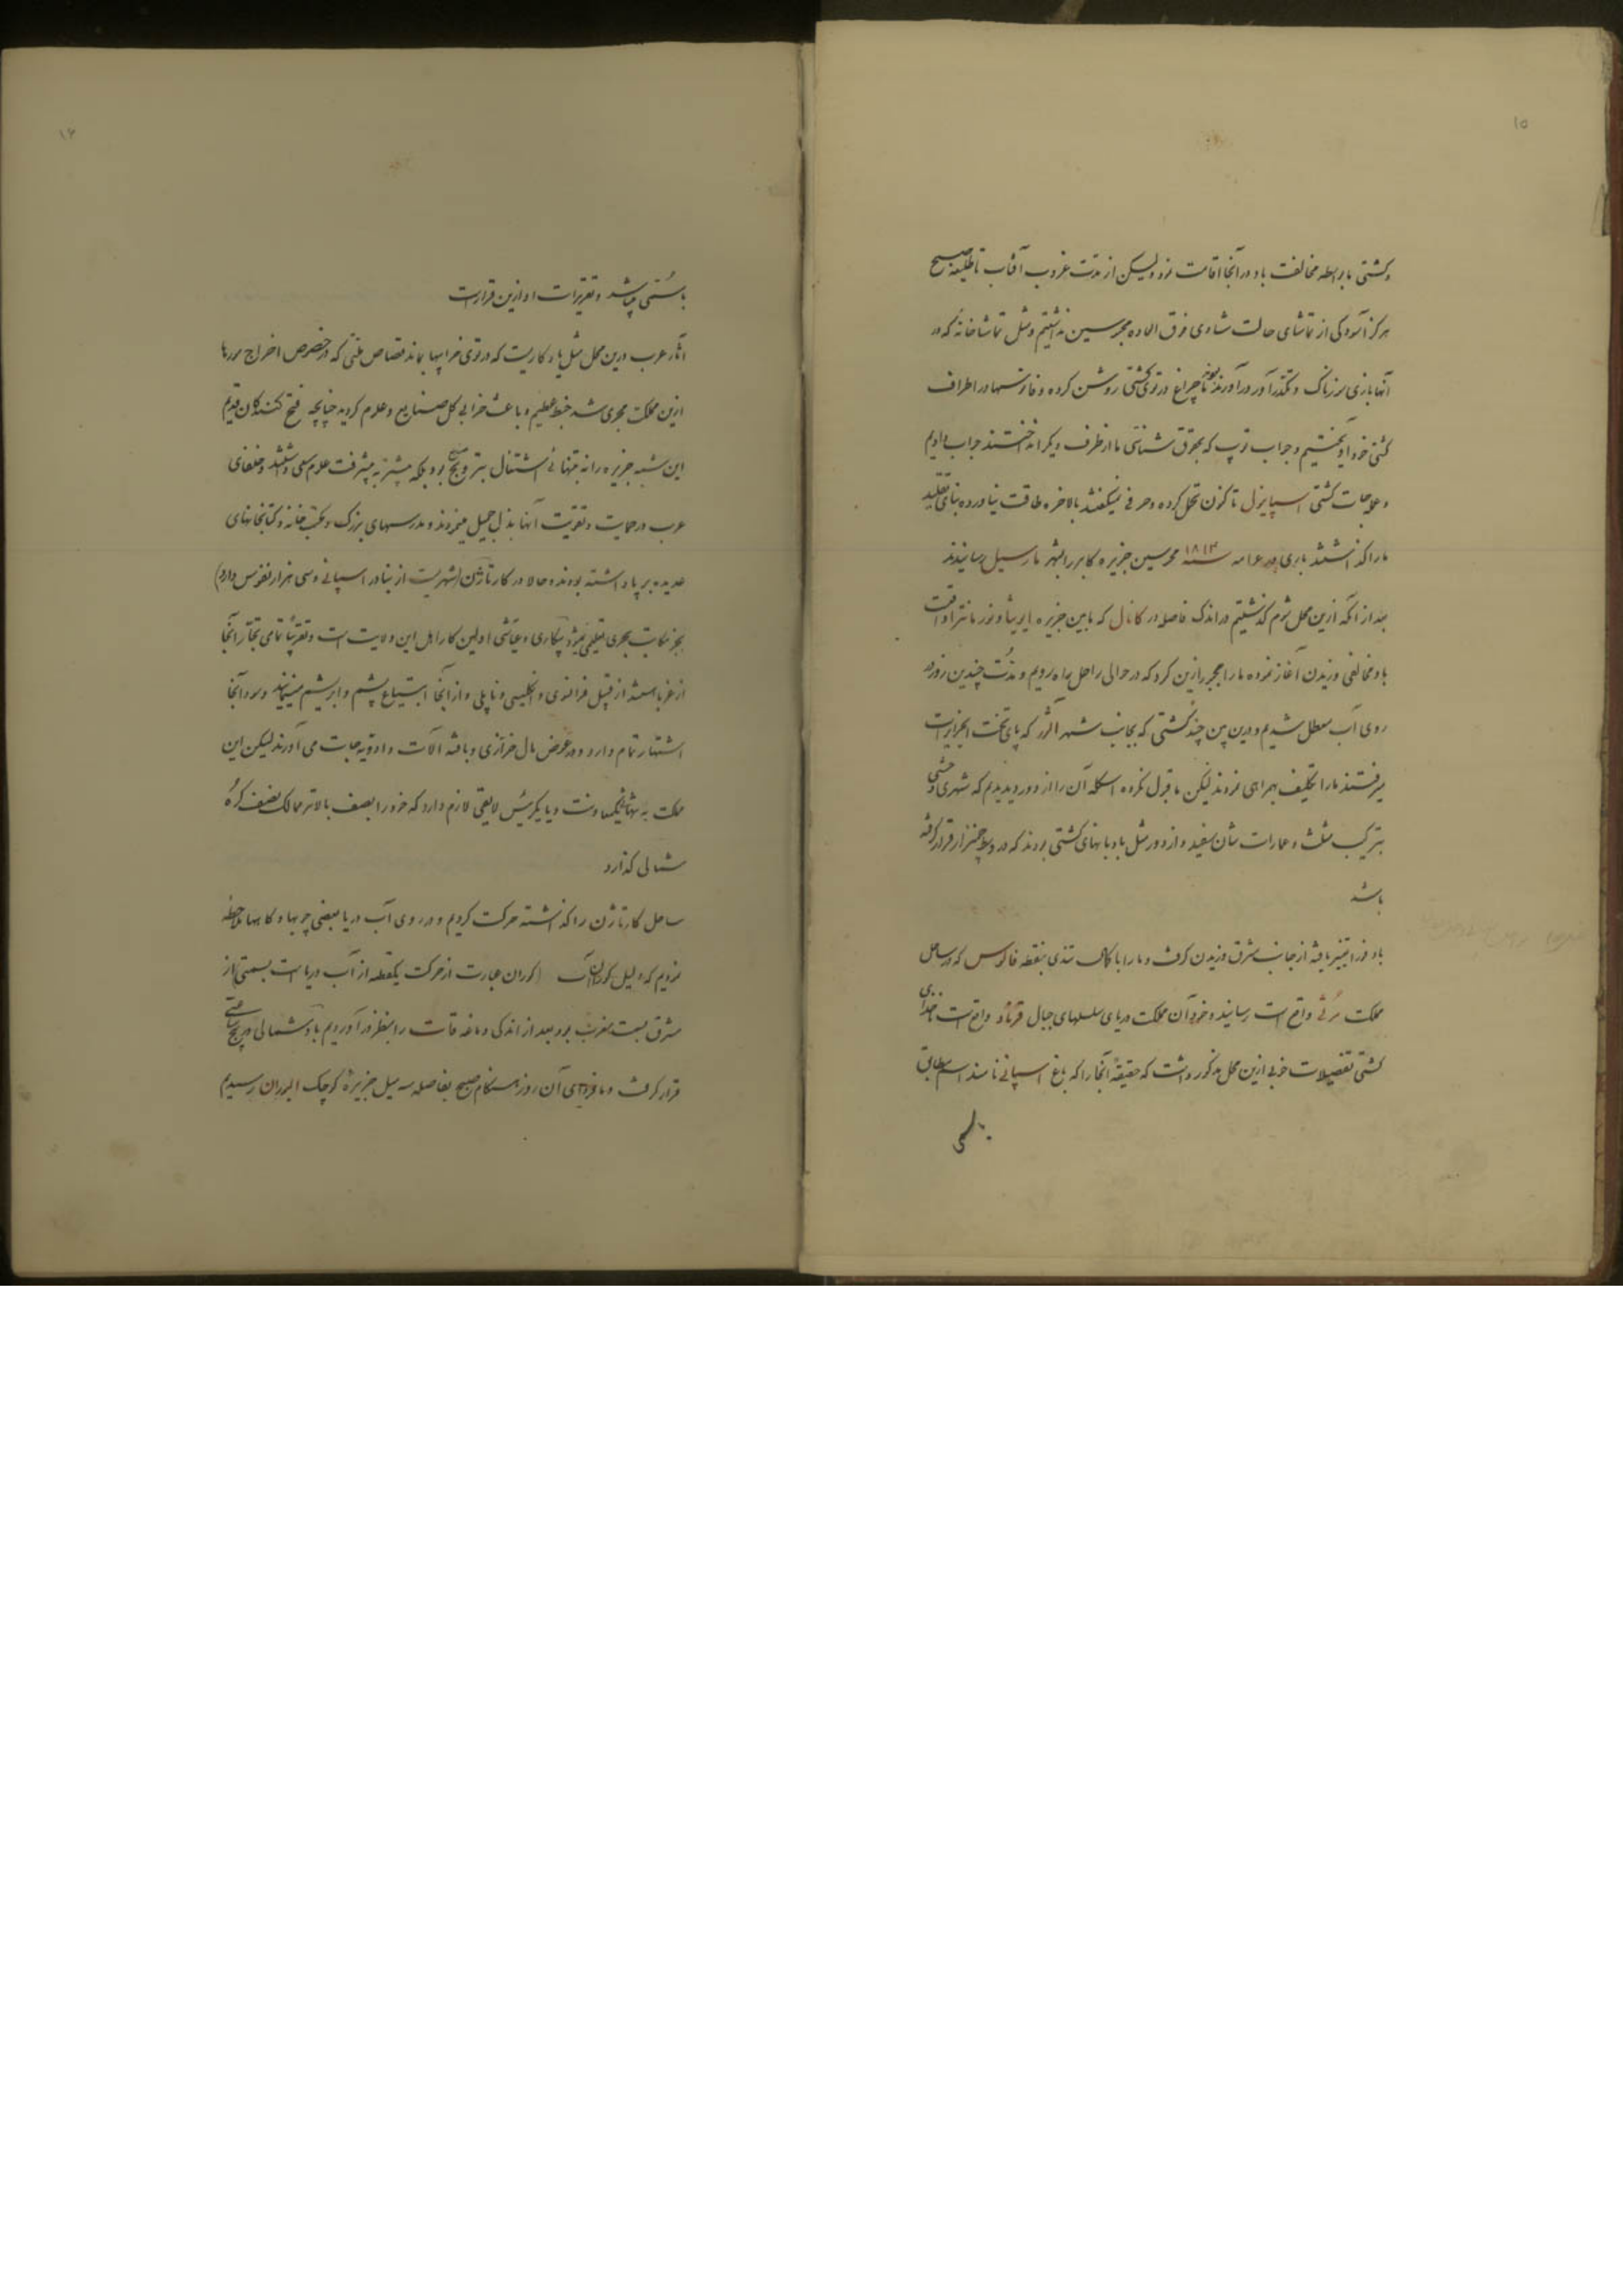 ۱۵
و کشتی ما بواسطه مخالفت باد در آنجا اقامت نمود ولیکن از مدت غروب آفتاب تا طلیعه صبح
هرگز آسودگی از تماشای حالت شادی فوق العاده محبوسین نداشتیم و مثل تماشاخانهٔ که در
آنها بازی سوزناک و مکدر آور در آورند چراغ در توی کشتی روشن کرده و فانوسها در اطراف
کشتی خود آویختیم و جواب توپ که بحق شناسی ما از طرف دیگر انداختند جواب دادیم
و کشتی اسپانیول تاکنون تحمل کرده و حرفی نمیگفتند بالاخره طاقت نیاورده بنای تقلید
ما را گذاشتند باری در سنه ۱۸۱۴ محبوسین جزیره کابررا بشهر مارسیل رسانیدند
بعد از آنکه ازین محل شوم گذشتیم در اندک فاصله در کانال که مابین جزیره ایویشا و فورمانترا واقعست
باد مخالفی وزیدن آغاز نموده ما را مجبور ازین کرد که در حوالی راحل راه رویم و مدت چندین روز در
روی آب معطل شدیم و درین بین چند کشتی که بجانب شهر آلژر که پای تخت الجزایر است
میرفتند ما را تکلیف همراهی نمودند لیکن ما قبول نکرده اسکله آن را از دور دیدیم که شهری است وحشی
بترکیب مثلث و عمارات شان سفید و از دور مثل بادبانهای کشتی بودند که در وسط چمنزار قرار گرفته
باشد
باد فورا تغییر یافته از جانب مشرق وزیدن گرفت و ما را با کمال تندی بنقطه فانوس که در ساحل
مملکت مُرثی واقع است رسانید و خود آن مملکت در پای سلسلهای جبال واقع است ناخدای
کشتی تفصیلات خوبی ازین محل مذکور داشت که حقیقةً آنجا را که باغ اسپانی نامند اسم مطابق
بامسمی
۱۶
با مسمّی میباشد و تقریرات او ازین قرار است
آثار عرب درین محل مثل یادگاریست که در توی خرابیها بماند قصاص ملتی که در خصوص اخراج مورها
ازین مملکت مجری شد خبط عظیم و باعث خرابی کل صنایع و علوم گردید چنانچه فتح کنندگان قدیم
این شبه جزیره را نه تنهائی اشتغال بترویج صنایع بود بلکه بیشتر به پیشرفت علوم سعی داشتند و خلفای
عرب در حمایت و تقویت آنها بذل جمیل مینمودند و مدرسهای بزرگ و مکتب خانه و کتابخانهای
عدیده بر پا داشته بودند و حالا در کارتاژن (شهریست از بنادر اسپانی و سی هزار نفوس دارد)
بجز مکاتب بحری تعلیمی نمیشود بیکاری و عیّاشی اولین کار اهل این ولایت است و تقریباً تمامی تجّار آنجا
از غربا هستند از قبیل فرانسوی و انگلیسی و ناپلی و از آنجا ابتیاع پشم و ابریشم مینمایند و سود آنجا
اشتهار تمام دارد و در عوض مال خرازی و بافته آلات و ادویه جات می آورند لیکن این
مملکت به و یا یک رئیس لایقی لازم دارد که خود را بصف بالاتر ممالک نصف کرهٔ
شمالی گذارد
ساحل کارتاژن را گذاشته حرکت کردیم و در روی آب دریا بعضی چوبها و کاهها ملاحظه
نمودیم که دلیل کوران آب (کوران عبارت از حرکت یکقطعه از آب دریاست بسمتی) از
مشرق بسمت مغرب بود بعد از اندکی دماغه قات را بنظر در آوردیم باد شمالی در پنج ساعتی
قرار گرفت و ما فردای آن روز هنگام صبح بفاصله سه میل جزیرهٔ کوچک البوران رسیدیم